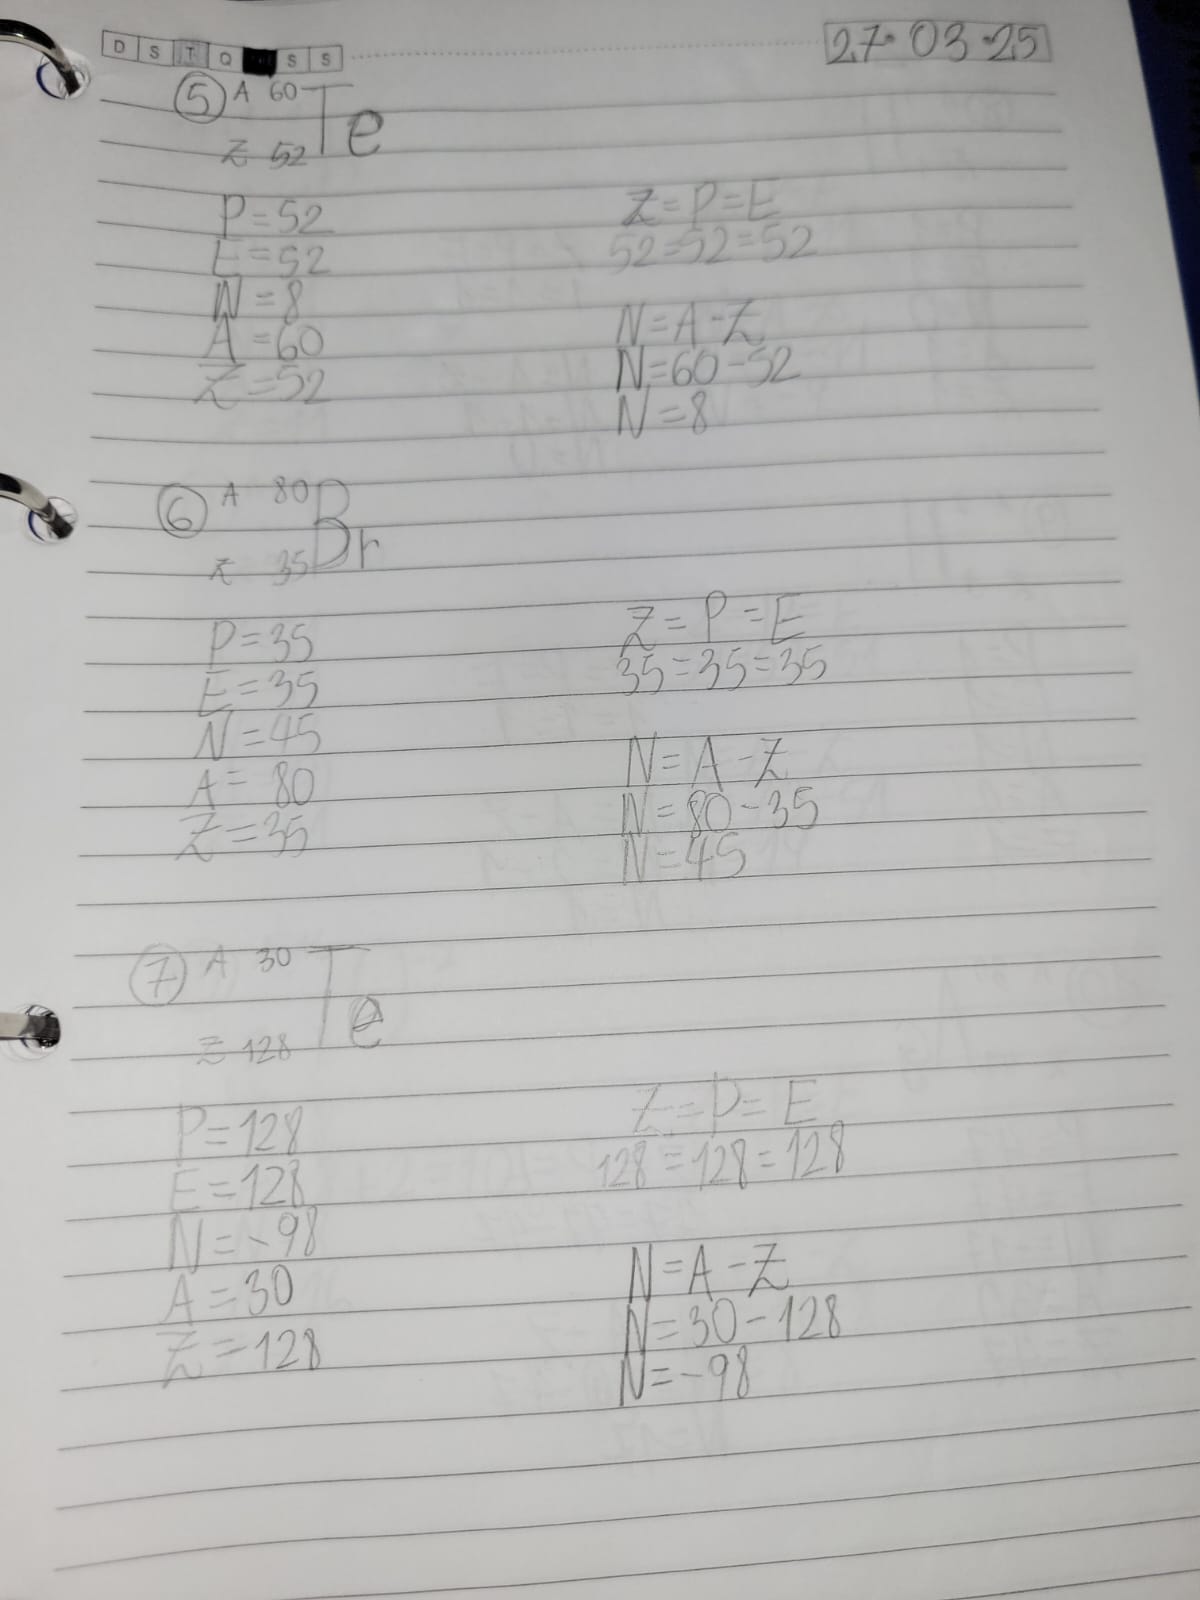 D S T Q S S
27·03·25
5 A 60 Te
Z 52
P=52
E=52
N=8
A=60
Z=52
Z=P=E
52=52=52
N=A-Z
N=60-52
N=8
6 A 80 Br
Z 35
P=35
E=35
N=45
A=80
Z=35
Z=P=E
35=35=35
N=A-Z
N=80-35
N=45
7 A 30 Te
Z 128
P=128
E=128
N=-98
A=30
Z=128
Z=P=E
128=128=128
N=A-Z
N=30-128
N=-98